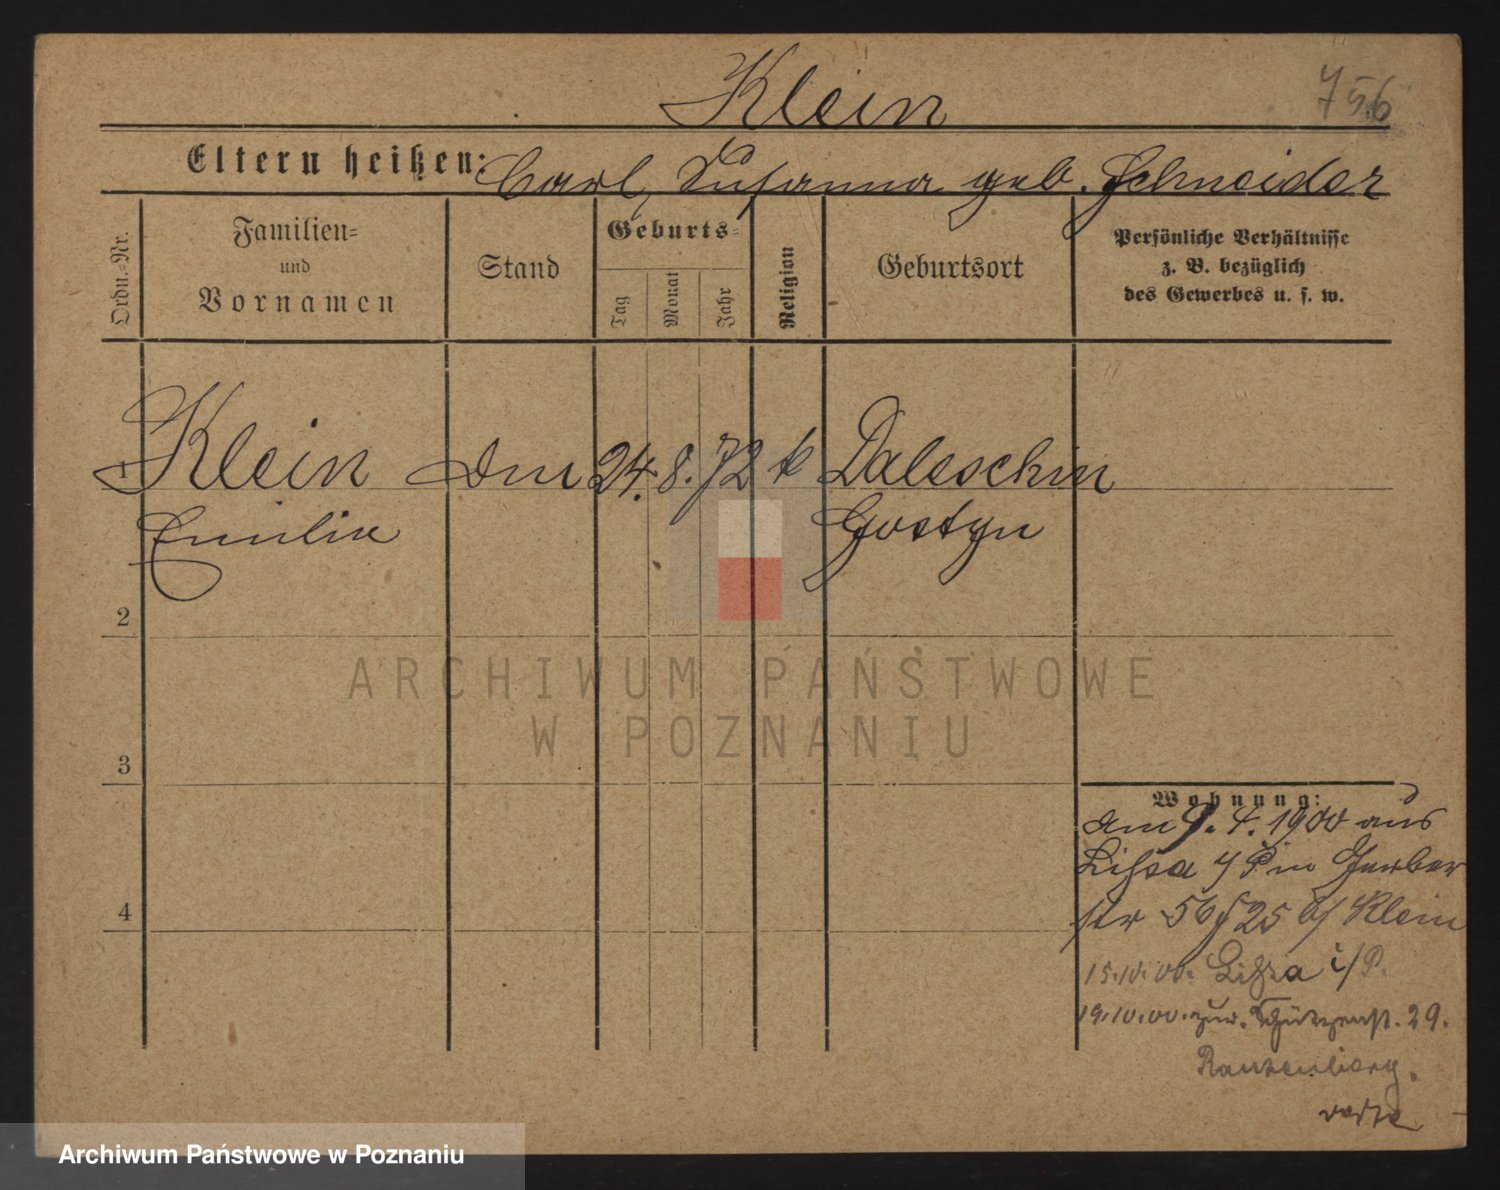 Klein
756
Eltern heißen: Carl, Susanna geb. Schneider
Ordn.-Nr.
Familien- und Vornamen
Stand
Geburts-
Tag
Monat
Jahr
Religion
Geburtsort
Persönliche Verhältnisse
z. B. bezüglich
des Gewerbes u. s. w.
1 Klein 24. 8. 72 k Daleschin
Emilie Gostyn
2
ARCHIWUM PAŃSTWOWE
W POZNANIU
3
Wohnung:
am 9. 4. 1900 aus
Lissa i/P in Gerber
str 56 25 b/ Klein
15.10.00. Lissa i/P.
4
19.10.00. zur. Schützenst. 29.
Rautenberg.
verte
Archiwum Państwowe w Poznaniu